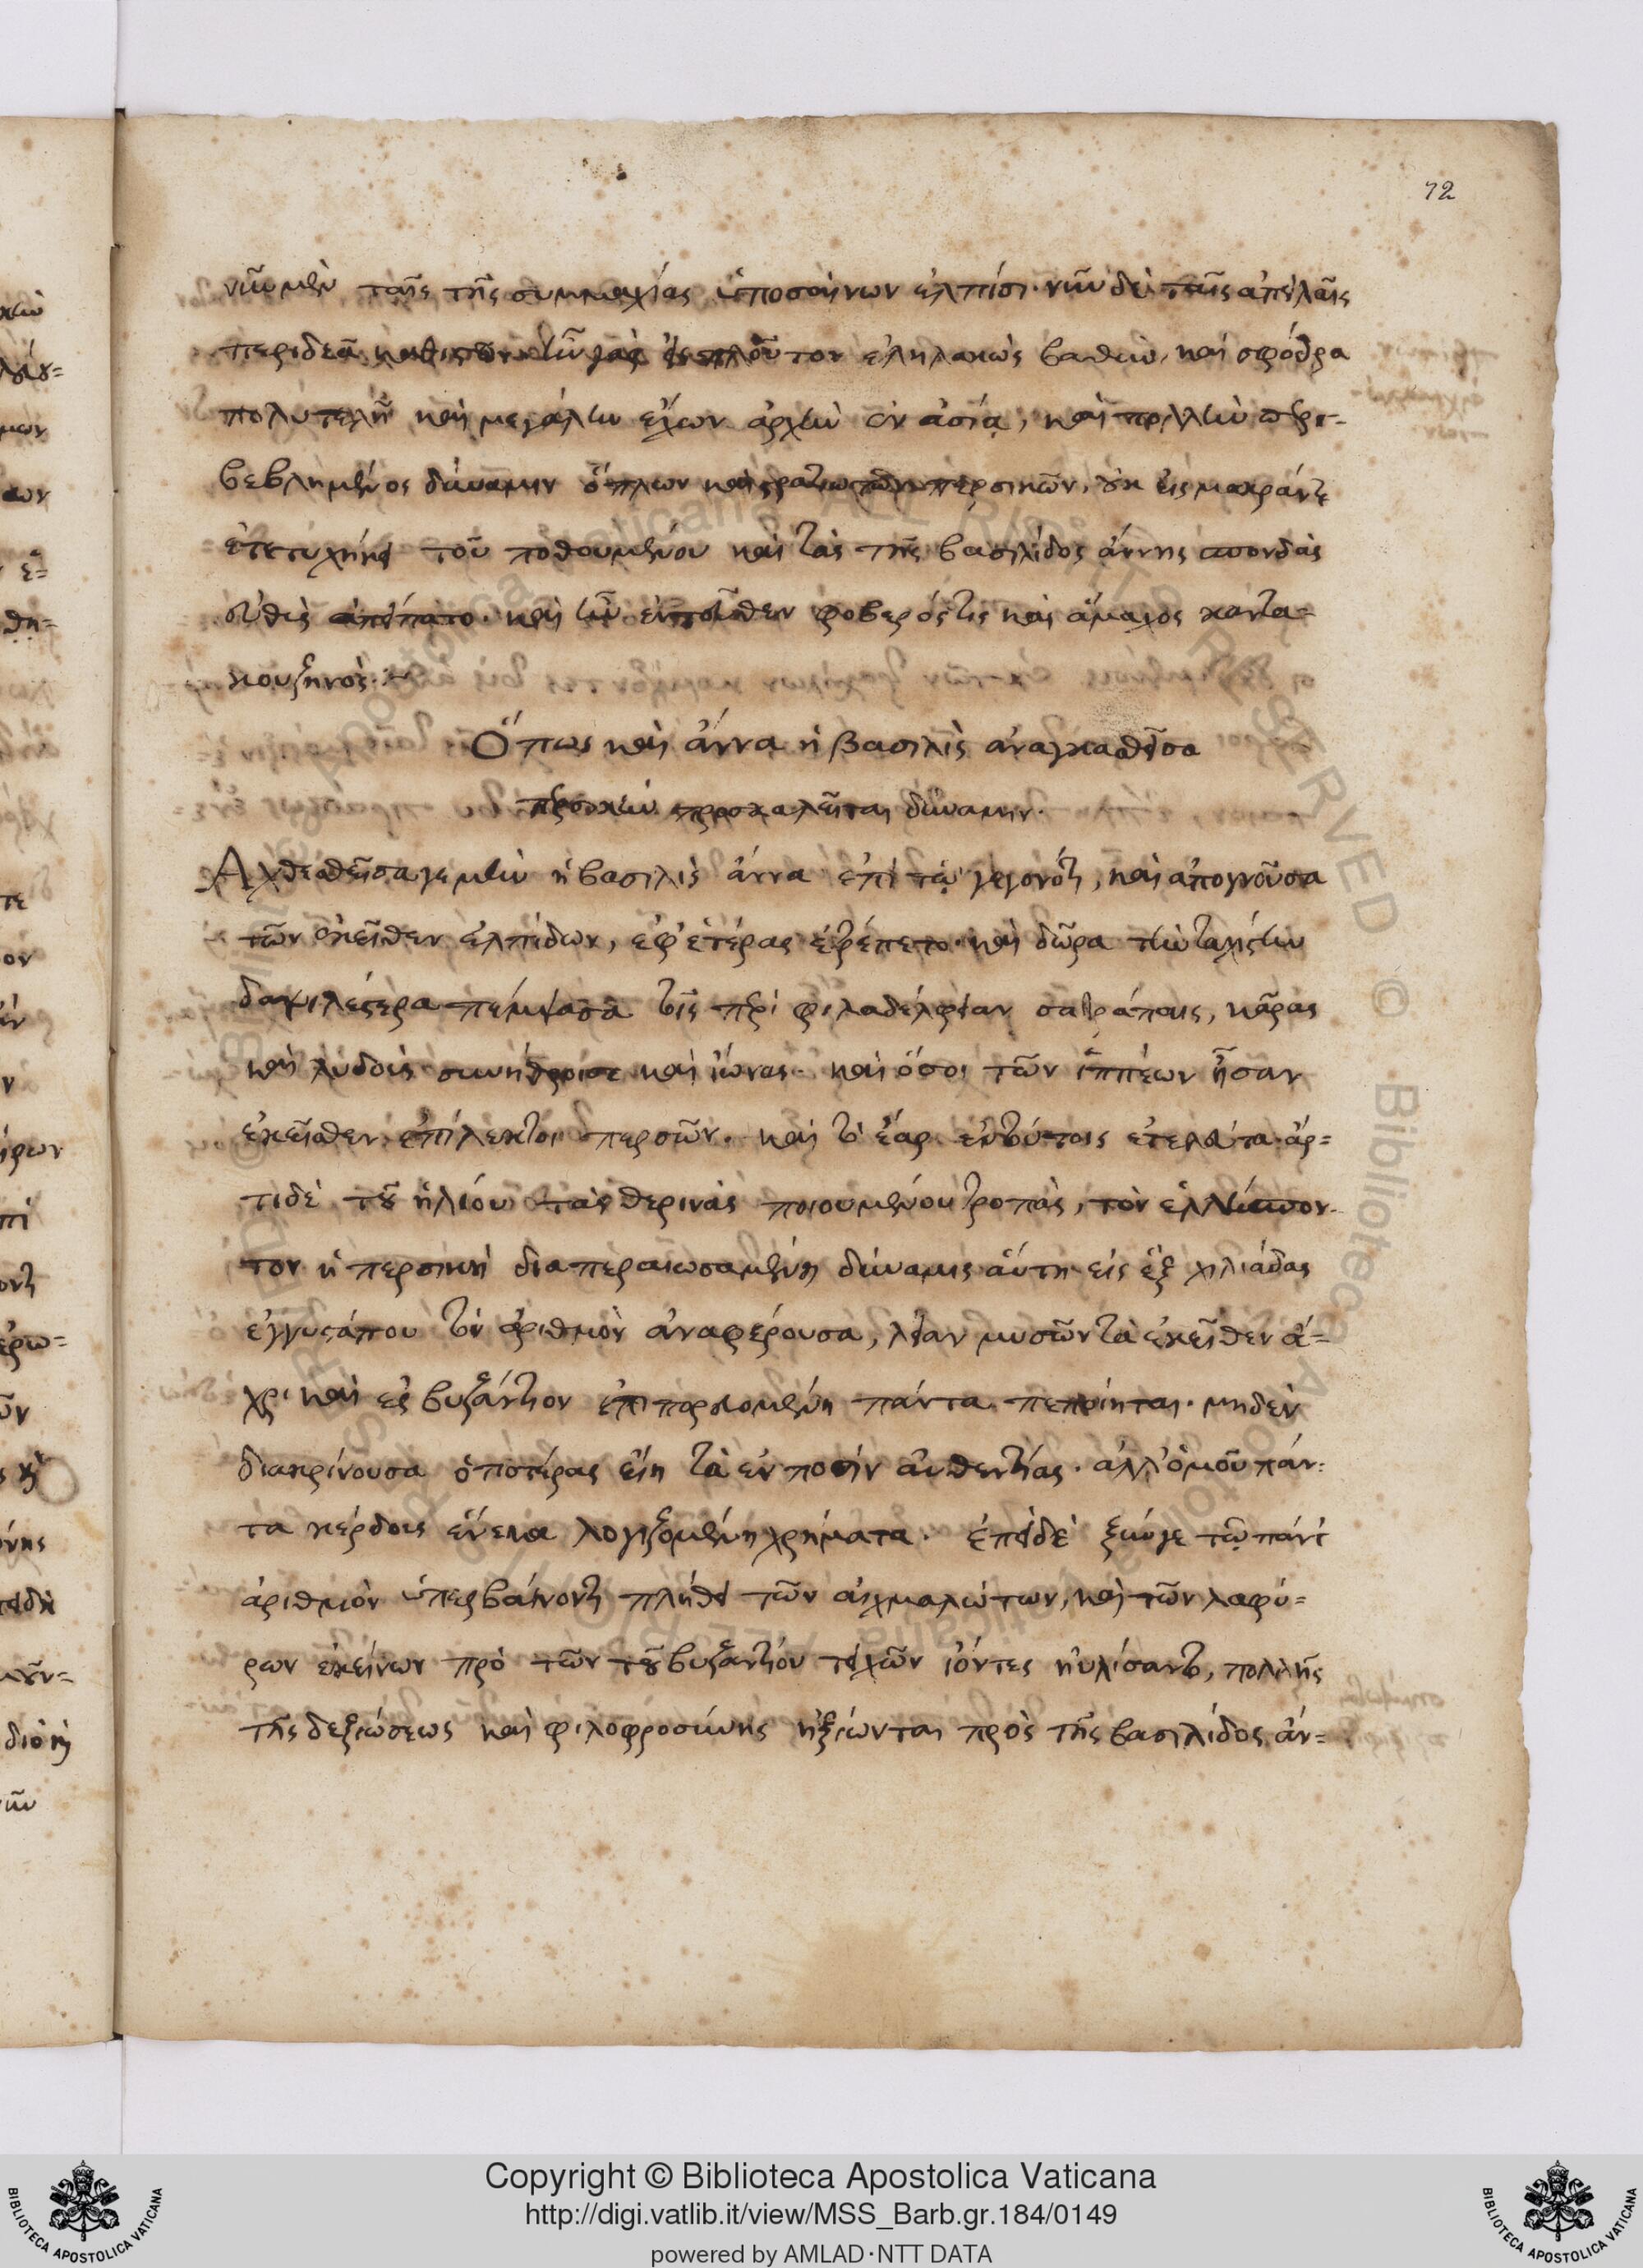 72
νῦν μὲν ταῖς τῆς συμμαχίας ὑποσαίνων ἐλπίσι· νῦν δὲ ταῖς ἀπειλαῖς
περιδεᾶ καθιστῶν· ἦν γὰρ ἐς πλοῦτον ἐληλακὼς βαθὺν, καὶ σφόδρα
πολυτελῆ καὶ μεγάλην ἔχων ἀρχὴν ἐν ἀσίᾳ, καὶ πολλὴν περι-
βεβλημένος δύναμιν ὅπλων καὶ στρατιωτῶν περσικῶν, οὐκ εἰς μακράν τε
ἐτετυχήκει τοῦ ποθουμένου καὶ τὰς τῆς βασιλίδος ἄννης σπονδὰς
εὐθὺς ἀπείπατο· καὶ ἦν ἐντεῦθεν φοβερός τις καὶ ἄμαχος καντα=
κουζηνός:
Ὅπως καὶ ἄννα ἡ βασιλὶς ἀναγκασθεῖσα
περσικὴν προσκαλεῖται δύναμιν·
Ἀχθεσθεῖσα γε μὴν ἡ βασιλὶς ἄννα ἐπὶ τῷ γεγονότι, καὶ ἀπογνοῦσα
τῶν ἐκεῖθεν ἐλπίδων, ἐφ' ἑτέρας ἐτρέπετο· καὶ δῶρα τὴν ταχίστην
δαψιλέστερα πέμψασα τοῖς περὶ φιλαδέλφειαν σατράπαις, κᾶρας
καὶ λυδοὺς συνήθροισε καὶ ἴωνας· καὶ ὅσοι τῶν ἱππέων ἦσαν
ἐκεῖθεν ἐπίλεκτοι περσῶν. καὶ τὸ ἔαρ ἐν τούτοις ἐτελεύτα· ἄρ=
τι δὲ τοῦ ἡλίου τὰς θερινὰς ποιουμένου τροπὰς, τὸν ἑλλήσπον-
τον ἡ περσικὴ διαπεραιωσαμένη δύναμις αὕτη εἰς ἓξ χιλιάδας
ἐγγύς που τὸν ἀριθμὸν ἀναφέρουσα, λείαν μυσῶν τὰ ἐκεῖθεν ἄ=
χρι καὶ ἐς βυζάντιον ἐπιπορευομένη πάντα πεποίηται· μηδὲν
διακρίνουσα ὁποτέρας εἴη τὰ ἐν ποσὶν αὐθεντίας· ἀλλ' ὁμοῦ πάν=
τα κέρδους ἕνεκα λογιζομένη χρήματα. ἐπεὶ δὲ ξύν γε τῷ παντ
ἀριθμὸν ὑπερβαίνοντι πλήθει τῶν αἰχμαλώτων, καὶ τῶν λαφύ=
ρων ἐκείνων πρὸ τῶν τοῦ βυζαντίου τειχῶν ἰόντες ηὐλίσαντο, πολλῆς
τῆς δεξιώσεως καὶ φιλοφροσύνης ἠξίωνται πρὸς τῆς βασιλίδος ἄν=
Copyright © Biblioteca Apostolica Vaticana
http://digi.vatlib.it/view/MSS_Barb.gr.184/0149
powered by AMLAD·NTT DATA
BIBLIOTECA APOSTOLICA VATICANA
BIBLIOTECA APOSTOLICA VATICANA